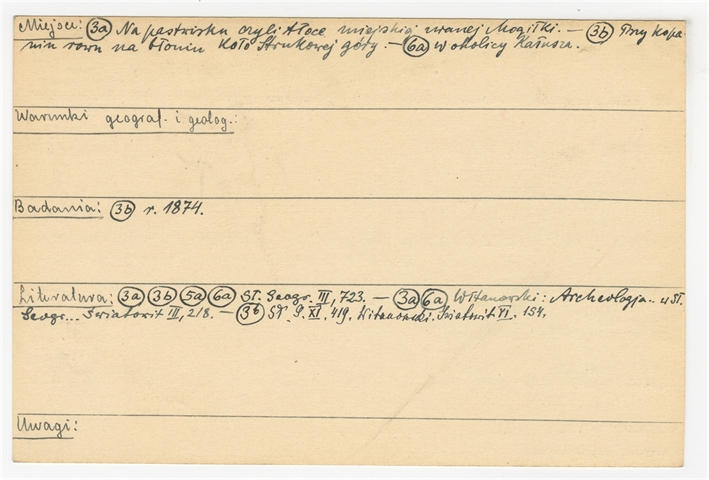 Miejsce: 3a Na pastwisku czyli tłoce miejskiej zwanej Mogiłki. — 3b Przy kopa-
niu rowu na błoniu koło Strukowej góry. — 6a w okolicy Kałusza.
Warunki geograf. i geolog.:
Badania: 3b r. 1874.
Literatura: 3a 3b 5a 6a Sł. Geogr. III, 723. — 3a 6a Witanowski: Archeologja.. w Sł.
Geogr... Światowit III, 218. — 3b Sł. G. XI. 419. Witanowski. Światowit VI. 154.
Uwagi: